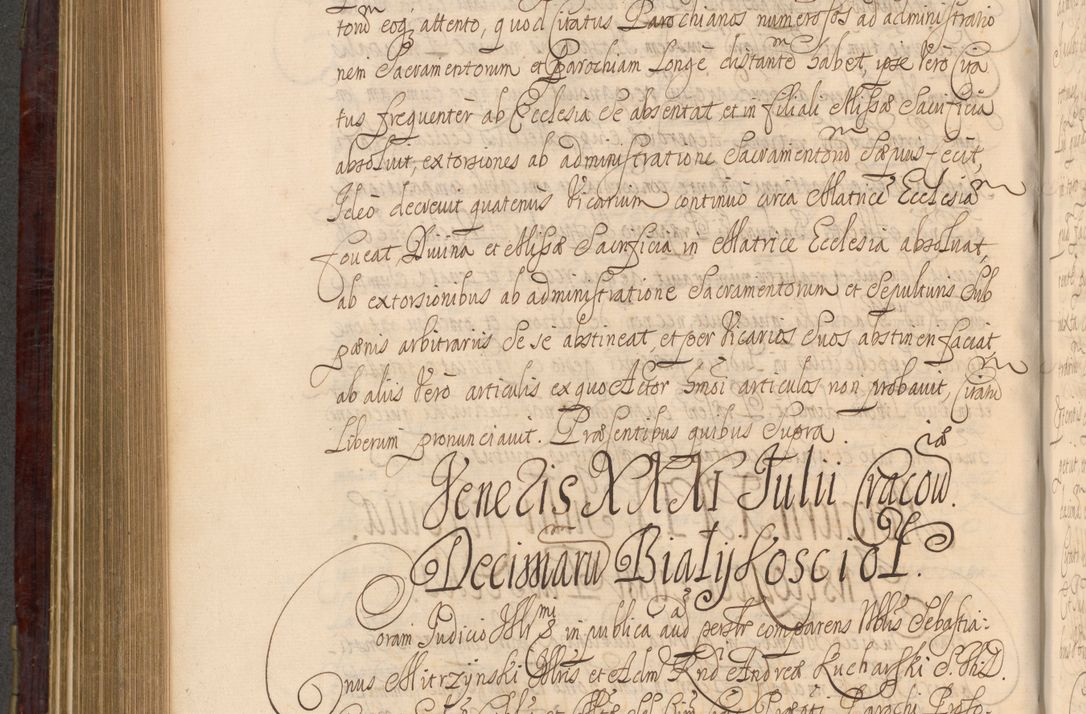 tond eoq; attento, quod Citatus Parochianos numerosos ad administratio
nem Sacramentorum et Parochiam longe distante habet, ipse vero Cita
tus frequenter ab Ecclesia se absentat, et in filiali Missæ Sacrificia
absolvit, extorsiones ab administratione Sacramentorũ sæpius fecit,
Ideo decrevit quatenus Vicarium continuo circa Matricē Ecclesiã
foveat, Divina et Missæ Sacrificia in Matrice Ecclesia absolvat,
ab extorsionibus ab administratione Sacramentorum et Sepulturis sub
pœnis arbitrariis se se abstineat, et per Vicarios suos abstineri faciat
ab aliis vero articulis ex quo Actor hmõi articulos non probavit, Citatũ
liberum pronunciavit. Præsentibus quibus supra.
Veneris XXXI Julii Cracoviæ.
Decimarũ Białykoscioł.
Coram Judicio Illmi in publica aud: comparens Nblis Sebastia:
nus Mitrzynski Illris et Adm Rndi Andreæ Kucharski S. Th. D.